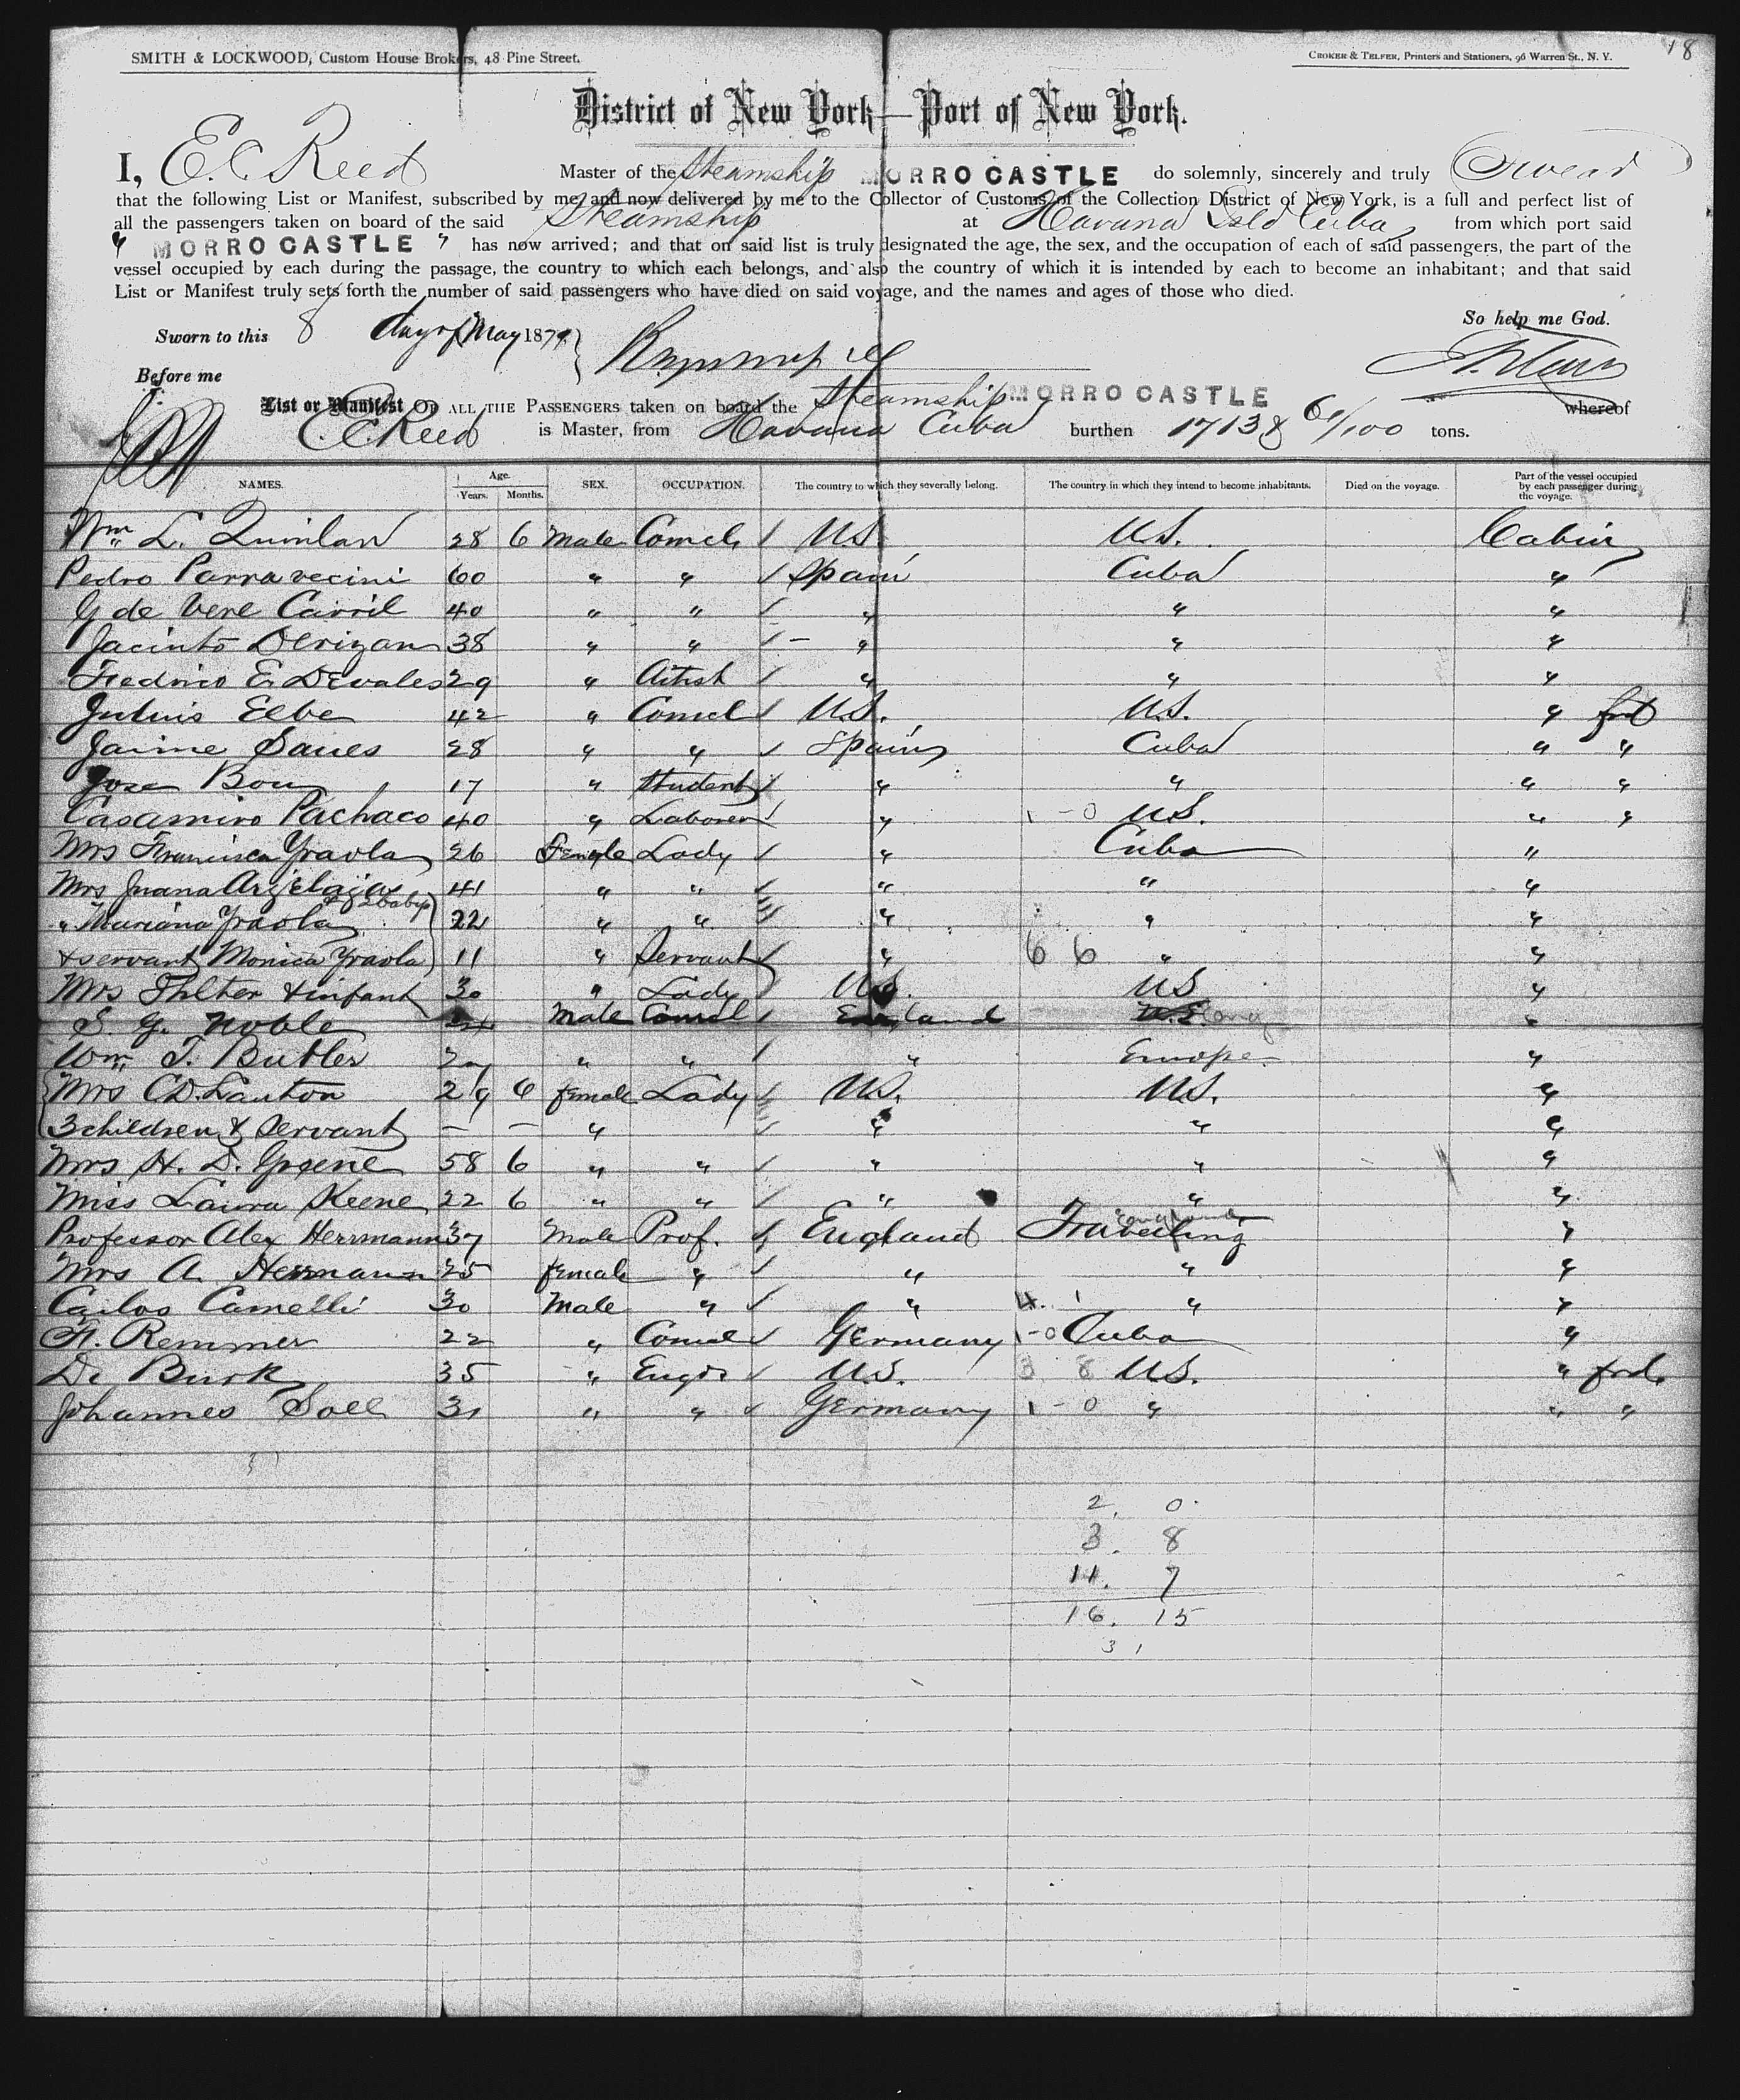 18
SMITH & LOCKWOOD, Custom House Brokers, 48 Pine Street.
CROKER & TELFER, Printers and Stationers, 96 Warren St., N. Y.
District of New York—Port of New York.
I, E. C. Reed Master of the Steamship MORRO CASTLE do solemnly, sincerely and truly Swear
that the following List or Manifest, subscribed by me, and now delivered by me to the Collector of Customs of the Collection District of New York, is a full and perfect list of
all the passengers taken on board of the said Steamship at Havana Isld Cuba from which port said
" MORRO CASTLE " has now arrived; and that on said list is truly designated the age, the sex, and the occupation of each of said passengers, the part of the
vessel occupied by each during the passage, the country to which each belongs, and also the country of which it is intended by each to become an inhabitant; and that said
List or Manifest truly sets forth the number of said passengers who have died on said voyage, and the names and ages of those who died.
So help me God.
Sworn to this 8 day of May 1879
Before me
List or Manifest OF ALL THE PASSENGERS taken on board the Steamship MORRO CASTLE whereof
E. C. Reed is Master, from Havana Cuba burthen 1713 & 61/100 tons.
NAMES. Age. Years. Months. SEX. OCCUPATION. The country to which they severally belong. The country in which they intend to become inhabitants. Died on the voyage. Part of the vessel occupied by each passenger during the voyage.
Wm L. Quinlan 28 6 Male Comcl U.S. U.S. Cabin
Pedro Parravecini 60 " " Spain Cuba "
G de Vere Carril 40 " " " " "
Jacinto Derizans 38 " " " " "
Fredrico E. Devales 29 " Artist " " "
Julius Elbe 42 " Comcl U.S. U.S. " fwd
Jaime Saues 28 " " Spain Cuba " "
Jose Bou 17 " Student " " " "
Casamiro Pachaco 40 " Laborer " 1-0 U.S. " "
Mrs Francisca Yraola 26 Female Lady " Cuba "
Mrs Juana 41 " " " " "
" Mariana Yraola & baby 22 " " " " "
& servant Monica Yraola 11 " Servant " 6 6 " "
Mrs & infant 30 " Lady U.S. US "
S. G. Noble Male Comcl England "
Wm T. Butler " " " Europe "
Mrs C.D. Lauton 29 6 female Lady U.S. U.S. "
3 children & Servant — — " " " "
Mrs H. D. Greene 58 6 " " " " "
Miss Laura Keene 22 6 " " " " "
Professor Alex Herrmann 37 Male Prof. England Travelling "
Mrs A. Herrmann 25 female " " " "
Carlos Camelli 30 Male " " 4. 1 " "
H. Remmer 22 " Comcl Germany 1-0 Cuba "
D. Burk 35 " Engr U.S. 3 8 U.S. " fwd.
Johannes Soll 31 " " Germany 1-0 " " "
2. 0.
3. 8
11. 7
16. 15
31